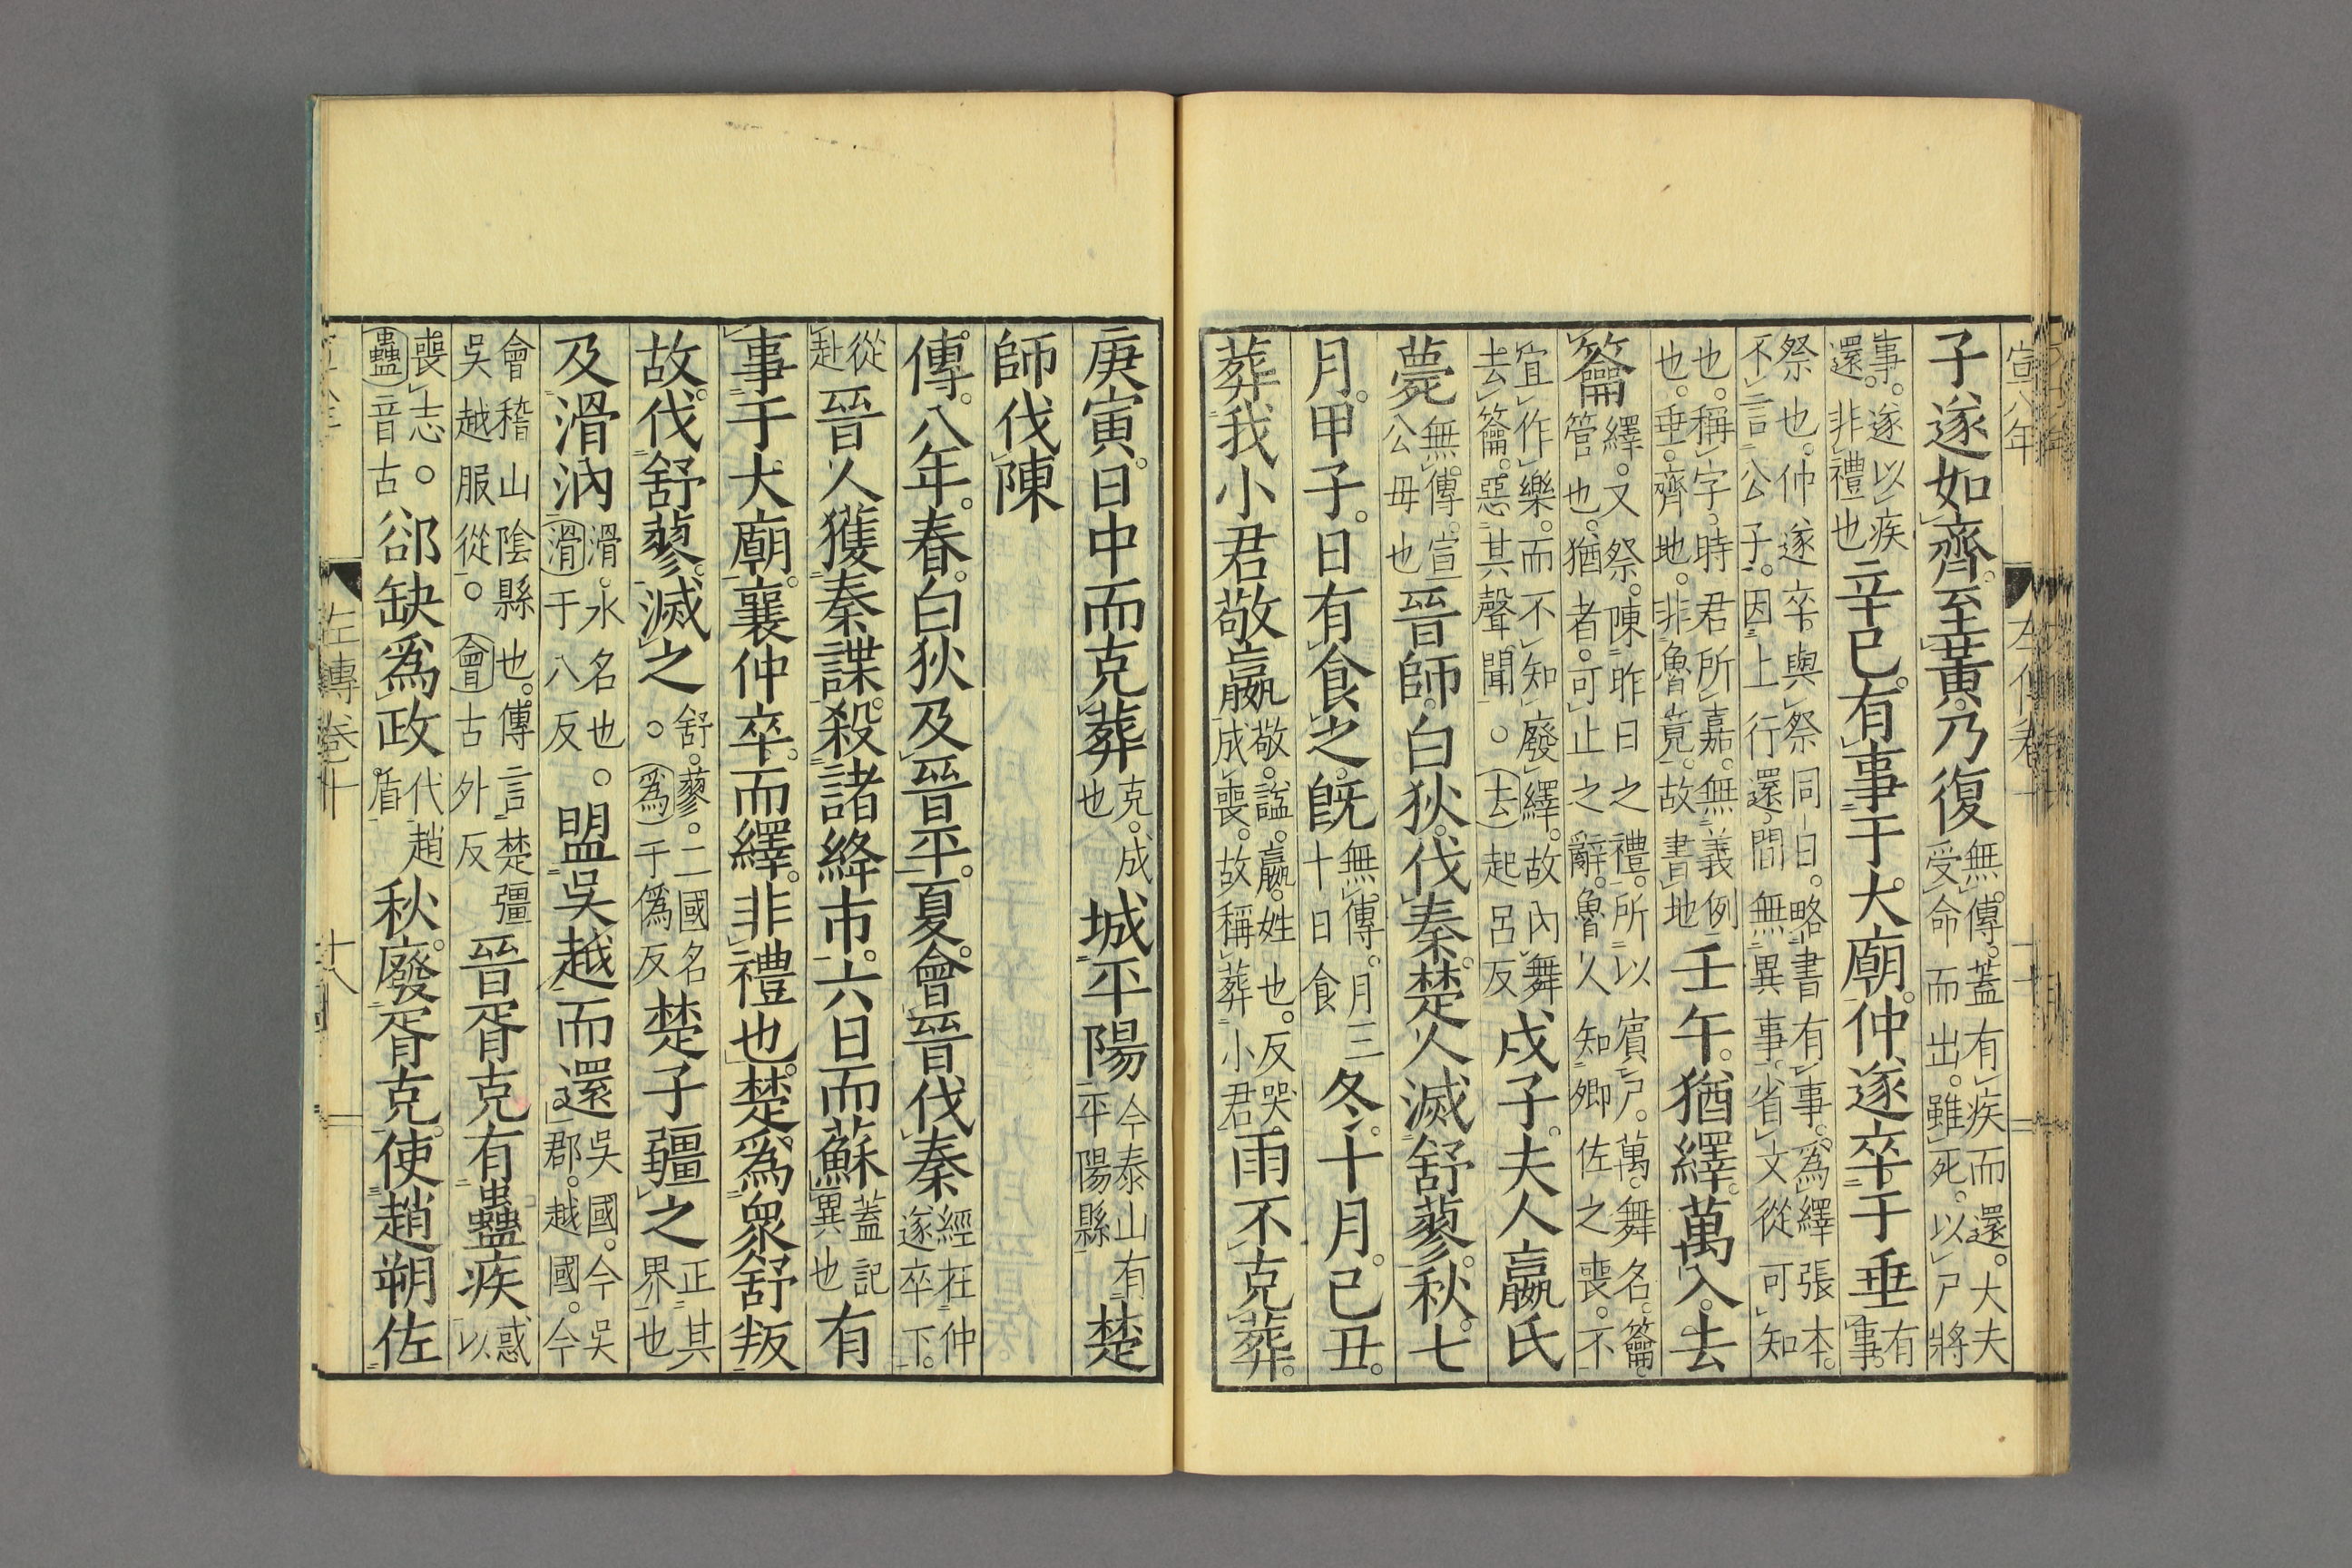 宣八年
子遂如齊至黃乃復無傳蓋有疾而還大夫受命而出雖死以尸將
事遂以疾還非禮也辛巳有事于大廟仲遂卒于垂有事
祭也仲遂卒與祭同日略書有事為繹張本不言公子因上行還間無異事省文從可知
也稱字時君所嘉無義例也垂齊地非魯竟故書地壬午猶繹萬入去
籥繹又祭陳昨日之禮所以賓尸萬舞名籥管也猶者可止之辭魯人知卿佐之喪不
宜作樂而不知廢繹故內舞去籥惡其聲聞○去起呂反戌子夫人嬴氏
薨無傳宣公毋也晉師白狄伐秦楚人滅舒蓼秋七
月甲子日有食之旣無傳月三十日食冬十月己丑
葬我小君敬嬴敬謚嬴姓也反哭成喪故稱葬小君雨不克葬
庚寅日中而克葬克成也城平陽今泰山有平陽縣楚
師伐陳
傳八年春白狄及晉平夏會晉伐秦經在仲遂卒下
從赴晉人獲秦諜殺諸絳市六日而蘇蓋記異也有
事于大廟襄仲卒而繹非禮也楚為衆舒叛
故伐舒蓼滅之舒蓼二國名○為于僞反楚子疆之正其界也
及滑汭滑水名也○滑于八反盟吳越而還吳國今吳郡越國今
會稽山陰縣也傳言楚彊吳越服從○會古外反晉胥克有蠱疾惑以
喪志○蠱音古郤缺為政代趙盾秋廢胥克使趙朔佐
左傳卷十
十八